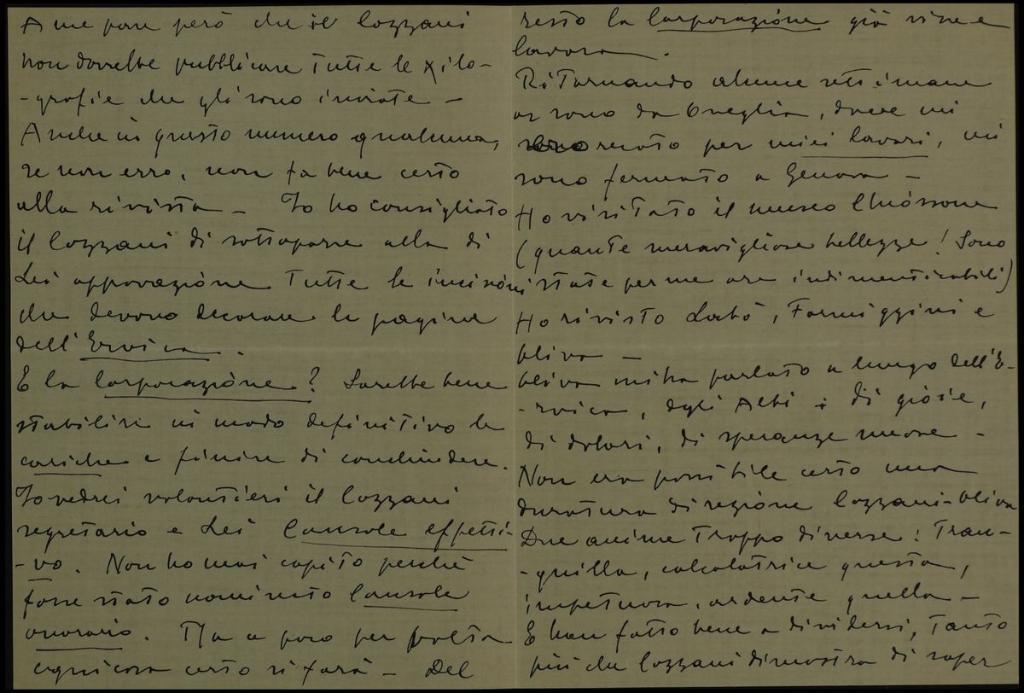 A me pare però che il Cozzani
non dovrebbe pubblicare tutte le xilo-
-grafie che gli sono inviate -
Anche in questo numero qualcuna,
se non erro, non fa bene certo
alla rivista - Io ho consigliato
il Cozzani di sottoporre alla di
Lei approvazione tutte le incisioni
che devono decorare le pagine
dell'Eroica.
E la Corporazione? Sarebbe bene
stabilire in modo definitivo le
cariche e finire di conchiudere.
Io vedrei volontieri il Cozzani
segretario e Lei Console effetti-
-vo. Non ho mai capito perchè
fosse stato nominato Console
onorario. Ma a poco per volta
ogni cosa certo si farà - Del
resto la Corporazione già vive e
lavora.
Ritornando alcune settimane
or sono da Oneglia, dove mi
recato per miei lavori, mi
sono fermato a Genova -
Ho visitato il museo Chiossone
(quante meravigliose bellezze! Sono
state per me ore indimenticabili)
Ho rivisto Labò, Formiggini e
Oliva -
Oliva mi ha parlato a lungo dell'E-
-roica, degli Albi: di gioie,
di dolori, di speranze nuove -
Non era possibile certo una
duratura direzione Cozzani-Oliva
Due anime troppo diverse: tran-
-quilla, calcolatrice questa,
impetuosa, ardente quella -
E han fatto bene a dividersi, tanto
più che Cozzani dimostra di saper